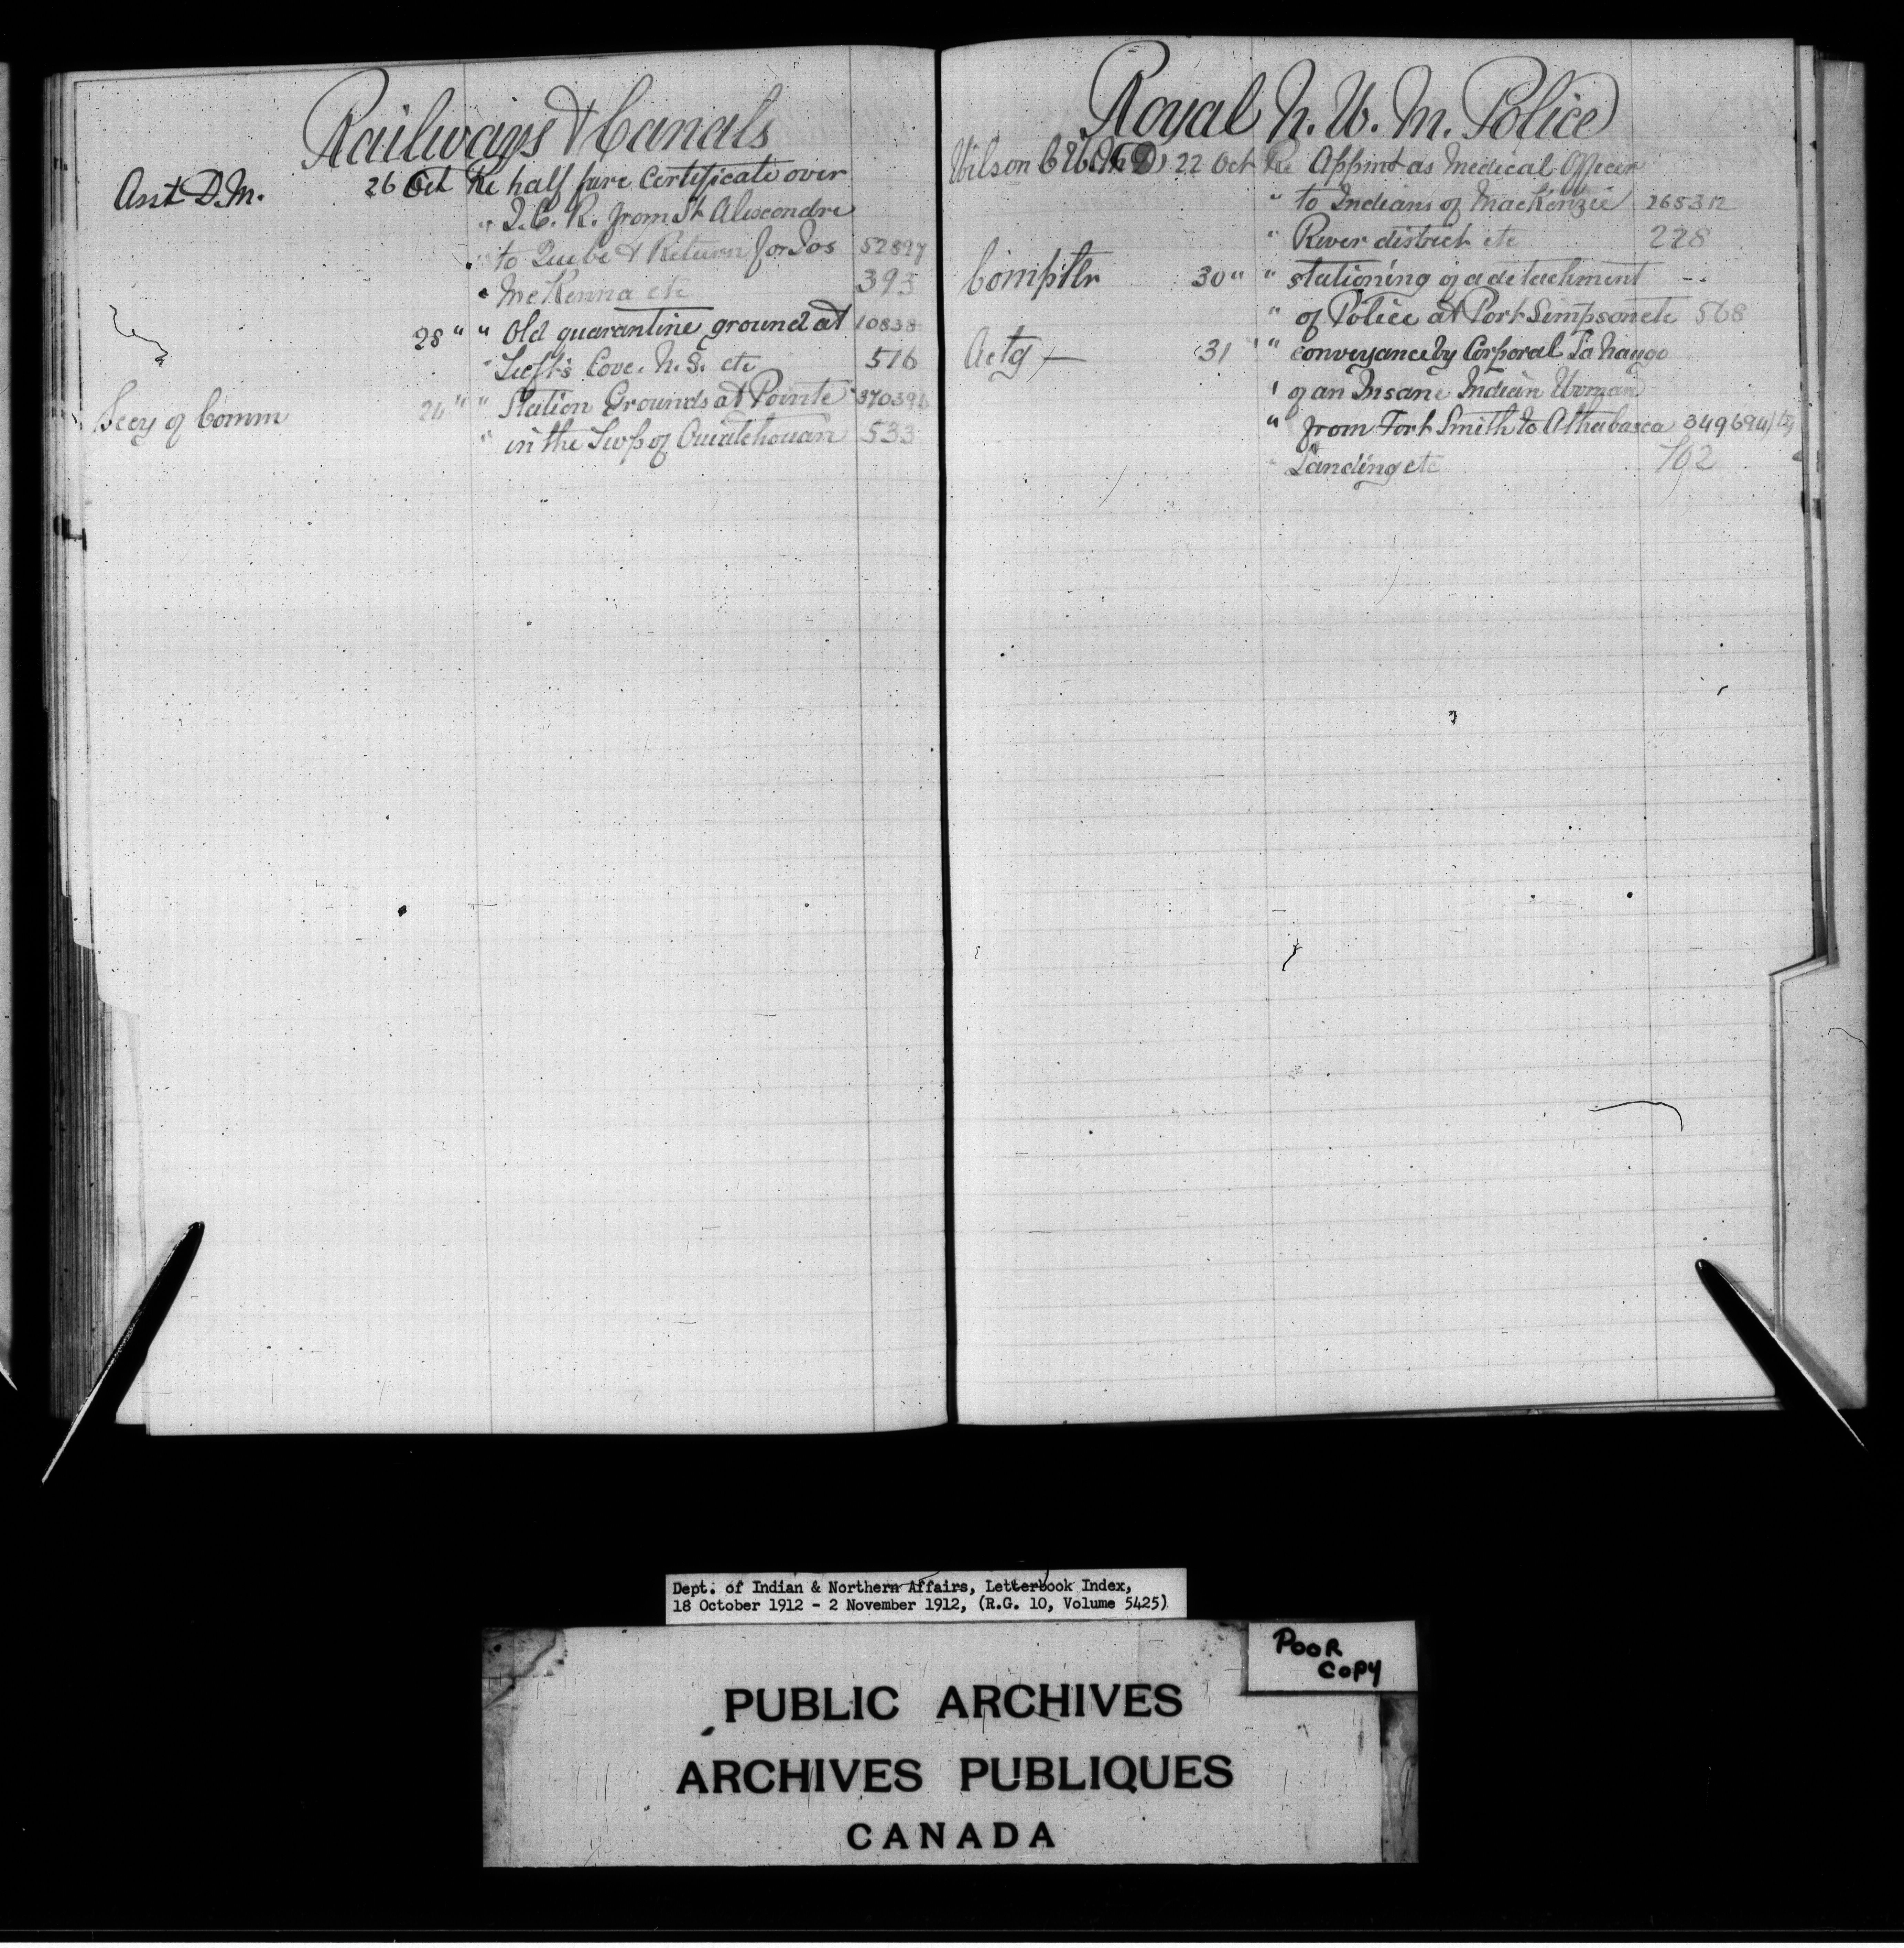 Railways & Canals
Asst D.M. 26 Oct Re half fare Certificate over
" I.C.R. from St Alexandre
" to Quebc & Return for Jos 52897
" McKenna etc 393
28 " " Old quarantine ground at 10838
" Tufts Cove. N.S. etc 516
Secy of Comm 24 " " Station Grounds at Pointe 370396
" in the Twp of Ouiatchouan 533
Royal N. W. M. Police
Wilson C W. M D) 22 Oct Re Appmt as Medical Officer
" to Indians of MacKenzie 265312
" River district etc 228
Comptlr 30 " " stationing of a detachment --
" of Police at Port Simpson etc 568
Actg — 31 " " conveyance by Corporal La Nauge
" of an Insane Indian Woman
" from Fort Smith to Athabasca 349694
" Landing etc 702
Dept. of Indian & Northern Affairs, Letterbook Index,
18 October 1912 - 2 November 1912, (R.G. 10, Volume 5425)
POOR
COPY
PUBLIC ARCHIVES
ARCHIVES PUBLIQUES
CANADA